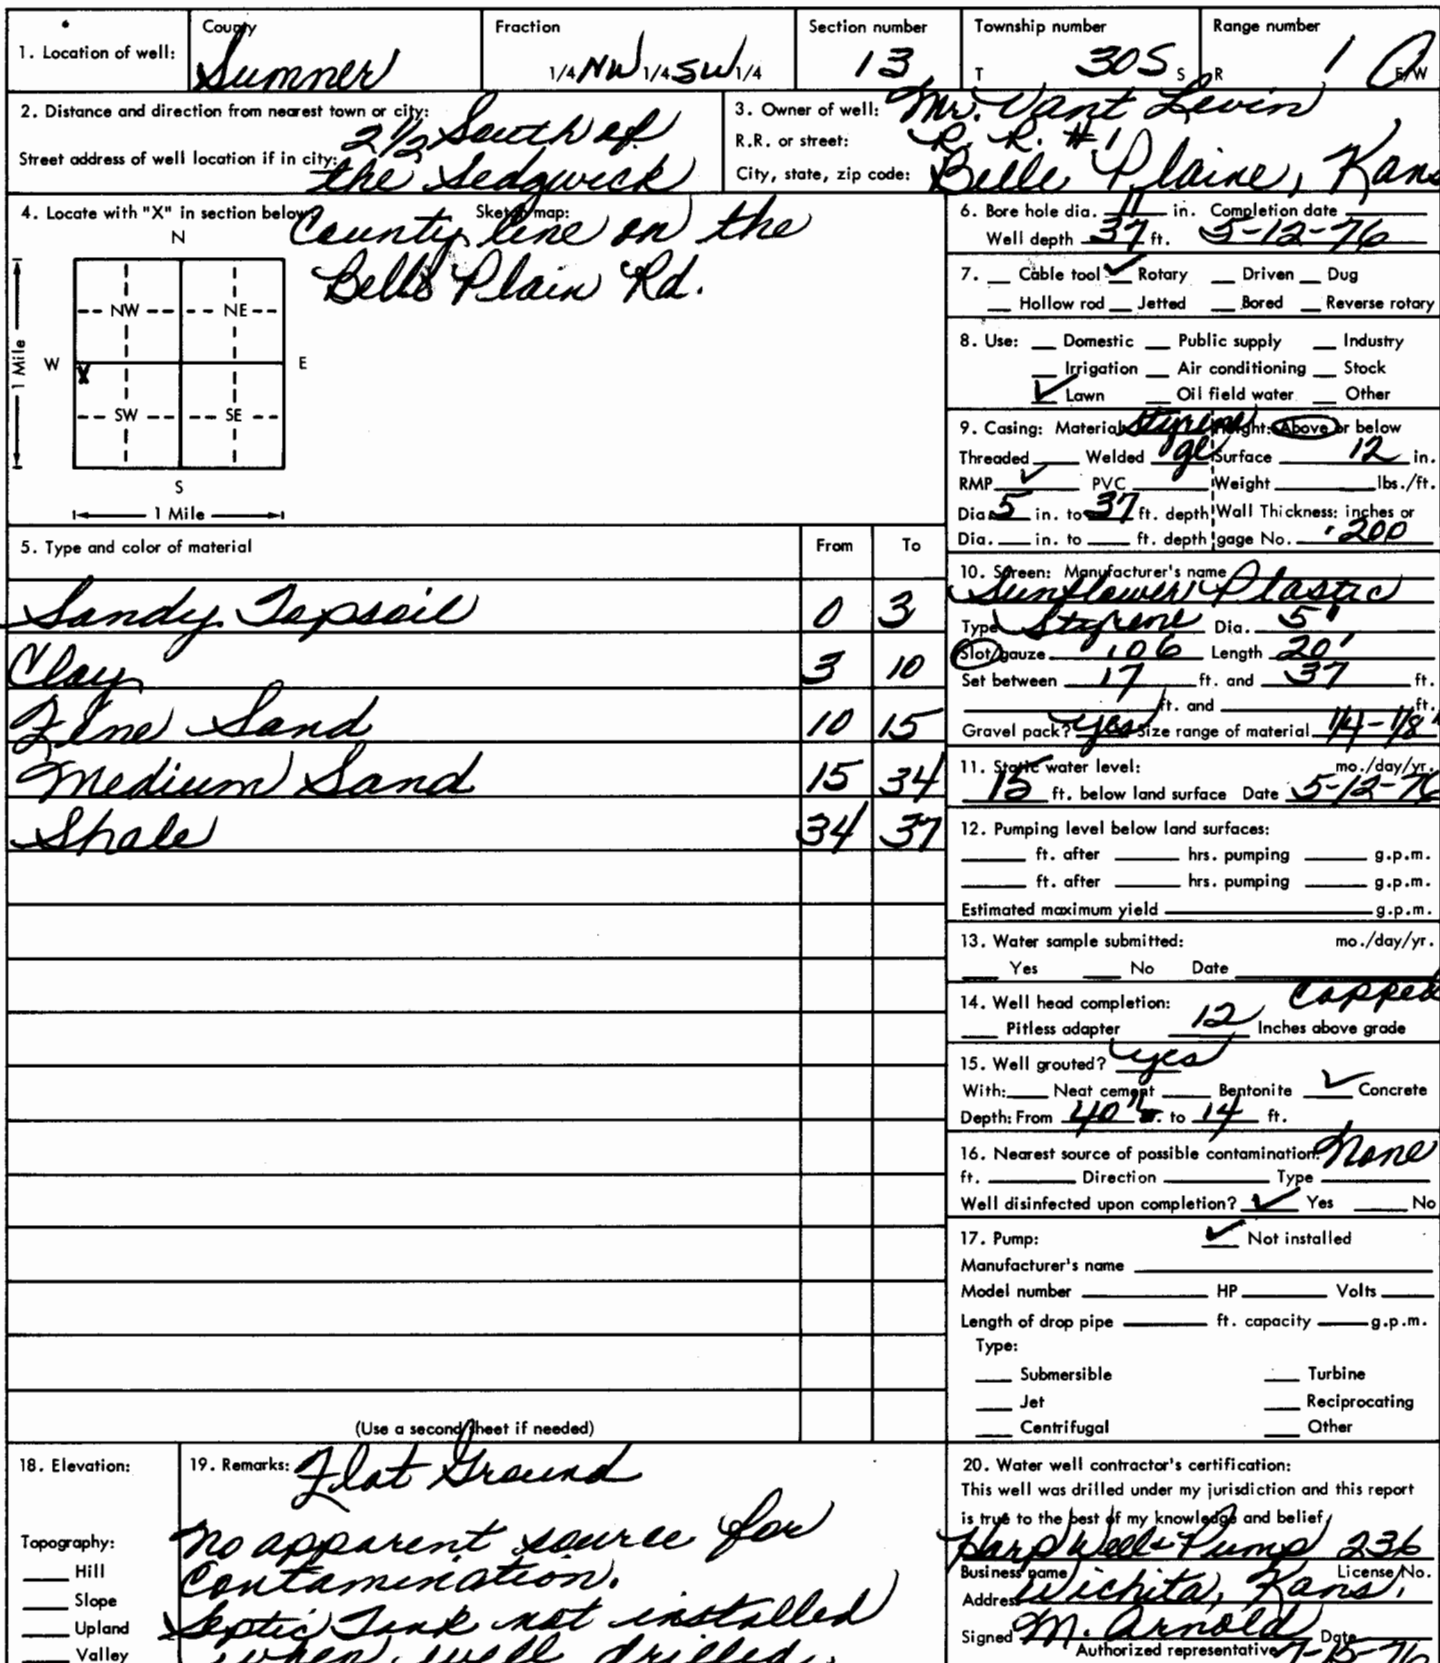 1. Location of well: County Sumner Fraction 1/4 NW 1/4 SW 1/4 Section number 13 Township number T 30S S Range number R 1 E/W
2. Distance and direction from nearest town or city: 2 1/2 South of
Street address of well location if in city: the Sedgwick
3. Owner of well: Mr. Vant Levin
R.R. or street: R. R. #1
City, state, zip code: Belle Plaine, Kans
4. Locate with "X" in section below: Sketch map:
County line on the
Belle Plain Rd.
N
NW NE
W X E
SW SE
S
1 Mile
1 Mile
6. Bore hole dia. 11 in. Completion date
Well depth 37 ft. 5-12-76
7. Cable tool ✓ Rotary Driven Dug
Hollow rod Jetted Bored Reverse rotary
8. Use: Domestic Public supply Industry
Irrigation Air conditioning Stock
✓ Lawn Oil field water Other
9. Casing: Material Styrene Height: Above or below
Threaded Welded Surface 12 in.
RMP ✓ PVC Weight lbs./ft.
Dia. 5 in. to 37 ft. depth Wall Thickness: inches or
Dia. in. to ft. depth gage No. .200
5. Type and color of material From To
Sandy Topsoil 0 3
Clay 3 10
Fine Sand 10 15
Medium Sand 15 34
Shale 34 37
(Use a second sheet if needed)
10. Screen: Manufacturer's name
Sunflower Plastic
Type Styrene Dia. 5"
Slot/gauze .06 Length 20'
Set between 17 ft. and 37 ft.
ft. and ft.
Gravel pack? yes Size range of material 1/4-1/8"
11. Static water level: mo./day/yr.
15 ft. below land surface Date 5-12-76
12. Pumping level below land surfaces:
ft. after hrs. pumping g.p.m.
ft. after hrs. pumping g.p.m.
Estimated maximum yield g.p.m.
13. Water sample submitted: mo./day/yr.
Yes No Date
14. Well head completion: Capped
Pitless adapter 12 Inches above grade
15. Well grouted? yes
With: Neat cement Bentonite ✓ Concrete
Depth: From 40" to 14 ft.
16. Nearest source of possible contamination: None
ft. Direction Type
Well disinfected upon completion? ✓ Yes No
17. Pump: ✓ Not installed
Manufacturer's name
Model number HP Volts
Length of drop pipe ft. capacity g.p.m.
Type:
Submersible Turbine
Jet Reciprocating
Centrifugal Other
18. Elevation:
Topography:
Hill
Slope
Upland
Valley
19. Remarks: Flat Ground
No apparent source for
Contamination.
Septic Tank not installed
when well drilled.
20. Water well contractor's certification:
This well was drilled under my jurisdiction and this report
is true to the best of my knowledge and belief.
Harp Well & Pump 236
Business name License No.
Address Wichita, Kans.
Signed M. Arnold Date
Authorized representative 7-15-76